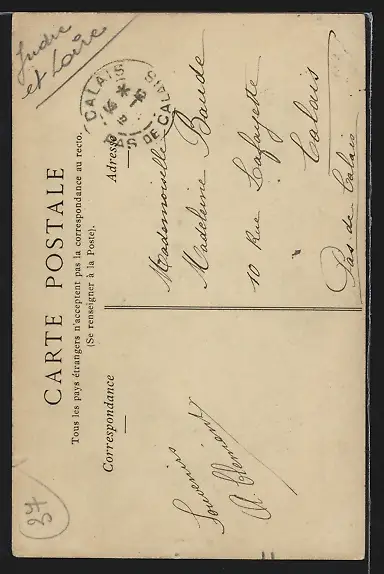 Indre
et Loire
CARTE POSTALE
Tous les pays étrangers n'acceptent pas la correspondance au recto.
(Se renseigner à la Poste).
Correspondance
Adresse
CALAIS
PAS DE CALAIS
Souvenirs
A. Clément
Mademoiselle
Madeleine Baude
10 Rue Lafayette
Calais
Pas de Calais
37